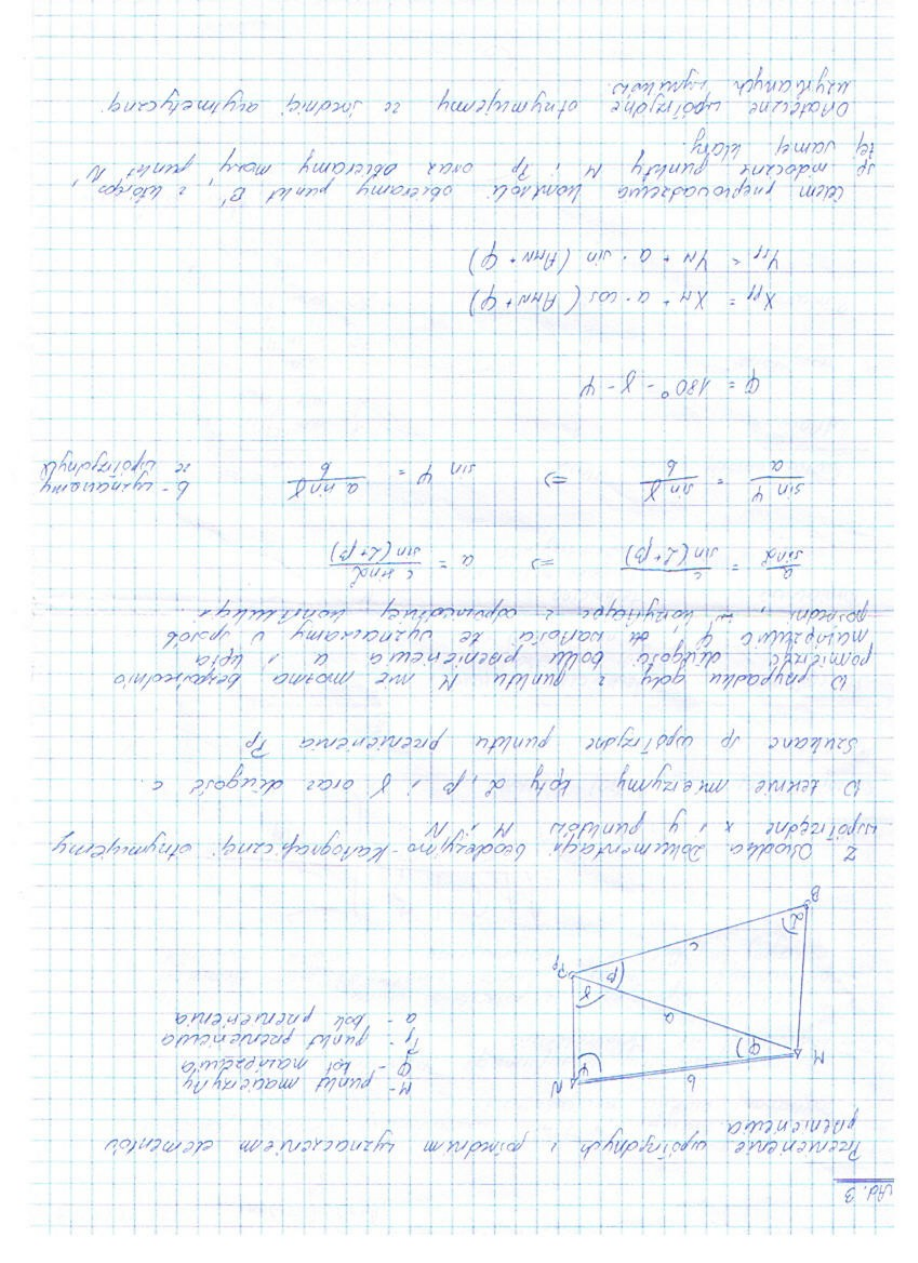 Ad. 3
Przeniesienie współrzędnych z pośrednim wyznaczeniem elementów
przeniesienia
M - punkt macierzysty
φ - kąt nawiązania
Pp - punkt przeniesienia
a - bok przeniesienia
M
N
b
φ
ψ
a
γ
β
Pp
c
α
B
Z Ośrodka Dokumentacji Geodezyjno-Kartograficznej otrzymujemy
współrzędne x i y punktów M i N
W terenie mierzymy kąty α, β i γ oraz długość c.
Szukane są współrzędne punktu przeniesienia Pp
W przypadku gdy z punktu M nie można bezpośrednio
pomierzyć długości boku przeniesienia a i kąta
nawiązania φ, te wartości wyznaczamy w sposób
pośredni, korzystając z odpowiedniej konstrukcji.
a / sin α = c / sin(α+β) ⇒ a = c sin α / sin(α+β)
sin ψ / a = sin γ / b ⇒ sin ψ = a sin γ / b
b - wyznaczamy
ze współrzędnych
φ = 180° - γ - ψ
X_PP = X_M + a · cos (A_MN + φ)
Y_PP = Y_M + a · sin (A_MN + φ)
Celem przeprowadzenia kontroli obieramy punkt B', z którego
są widoczne punkty M i Pp oraz obieramy nowy punkt N'
tej samej klasy.
Ostateczne współrzędne otrzymujemy ze średniej arytmetycznej
uzyskanych wyników.